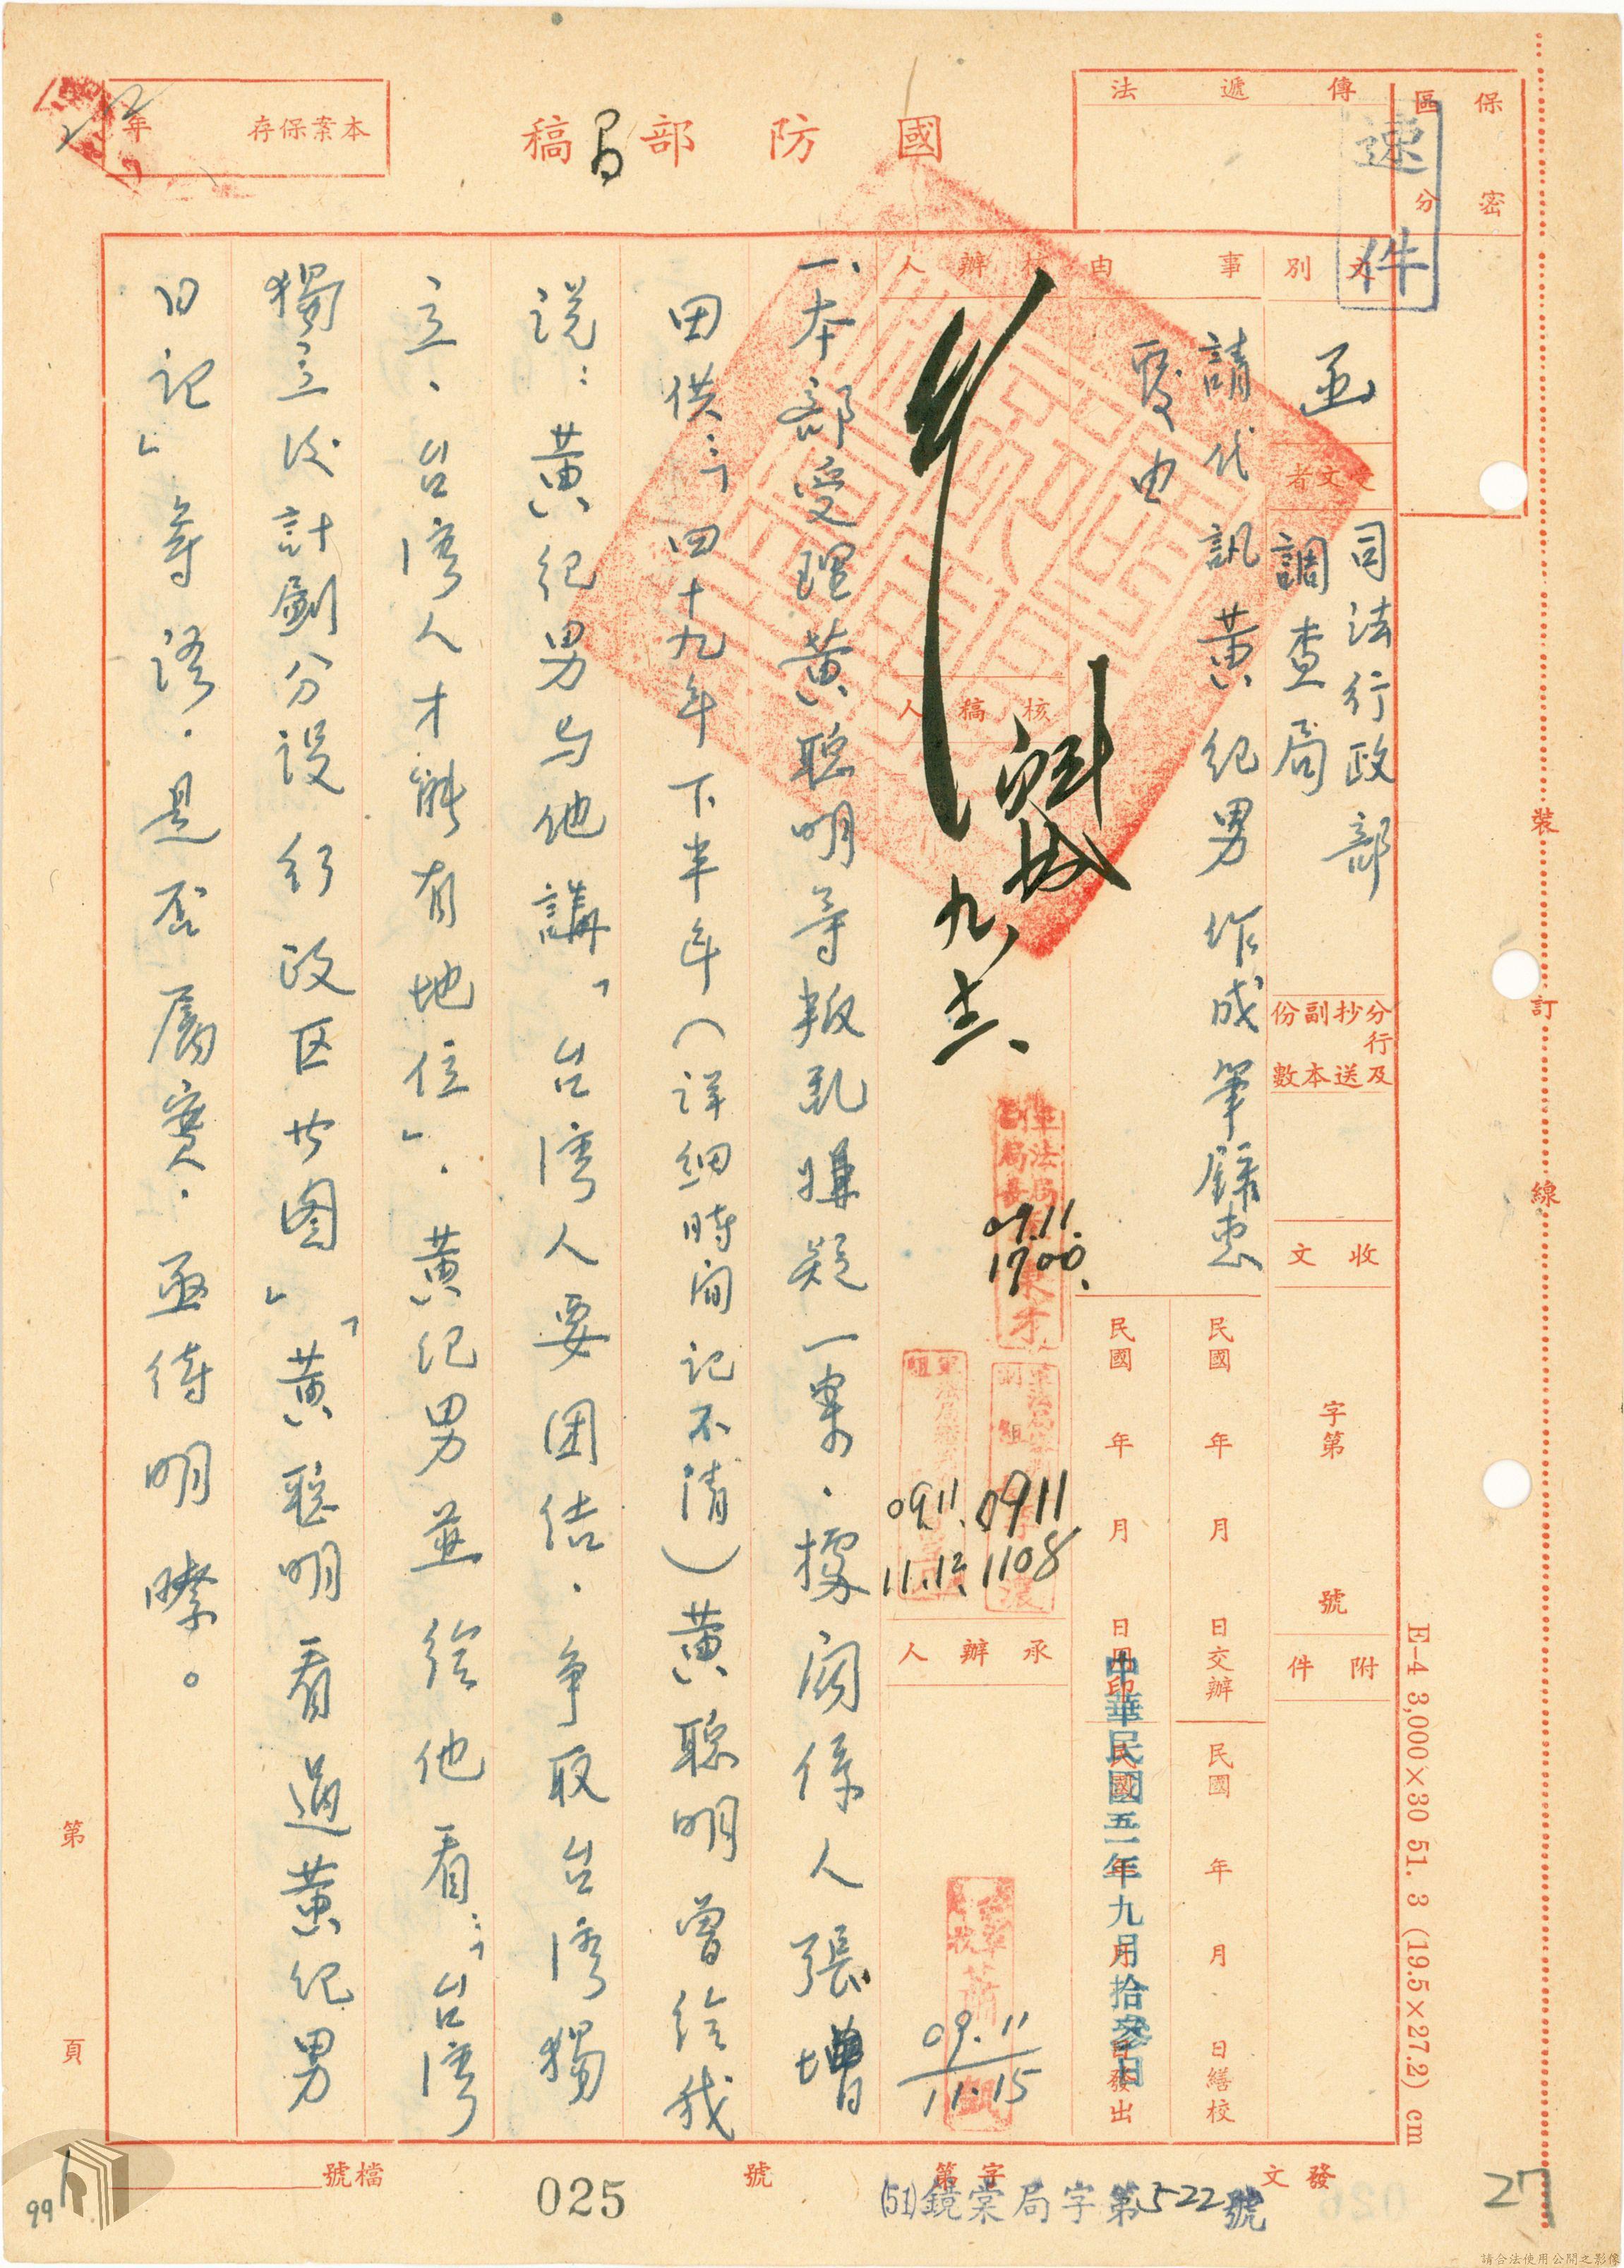 保密
區分
速件
傳遞法
國防部局稿
本案保存
年
文別
函
受文者
司法行政部
調查局
分行及抄送副本份數
收文
字第
號
附件
事由
請代訊黃紀男作成筆錄惠
覆由
民國 年 月 日交辦
民國 年 月 日繕校
民國 年 月 日用印
民國 年 月 日發出
中華民國五一年九月拾參日
核辦人
核稿人
九、
軍法局
09.11.
1700.
0911
1108
09.11.
11.12.
承辦人
09.11
11.15
一、本部受理黃聰明等叛亂嫌疑一案．據關係人張增
田供：「四十九年下半年（詳細時間記不清）黃聰明曾給我
說：黃紀男与他講「台灣人要团结．争取台灣獨
立．台灣人才能有地位」．黃紀男並给他看：「台灣
獨立後計劃分設行政区廿图」「黃聰明看過黃紀男
日記」等語．是否屬實．亟待明瞭。
裝
訂
線
E-4 3,000×30 51. 3 (19.5×27.2) cm
第
頁
發文
字第
號
(51)鏡棠局字第522號
檔號
025
27
99
請合法使用公開之影像